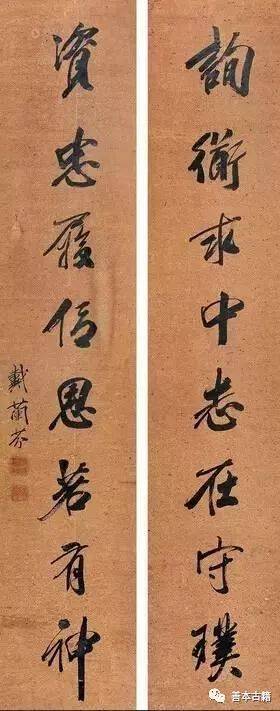 詢衡求中志在守璞
資忠履信思若有神
戴蘭芬
善本古籍